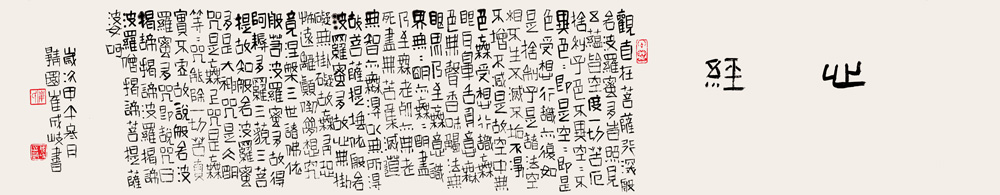 心經
觀自在菩薩行深般
若波羅蜜多時照見
五蘊皆空度一切苦厄
舍利子色不異空空不
異色色即是空空即是
色受想行識亦復如
是舍利子是諸法空
相不生不滅不垢不淨
不增不減是故空中無
色無受想行識無
眼耳鼻舌身意無
色無聲香味觸法無
眼界乃至無意識
界無無明亦無無明盡
乃至無老死亦無老
死盡無苦集滅道
無智亦無得以無所得
故菩提薩埵依般若
波羅蜜多故心無掛
礙無掛礙故無有恐
怖遠離顛倒夢想究
竟涅槃三世諸佛依
般若波羅蜜多故得
阿耨多羅三藐三菩
提故知般若波羅蜜
多是大神咒是大明
咒是無上咒是無等
等咒能除一切苦真
實不虛故說般若波
羅蜜多咒即說咒曰
揭諦揭諦波羅揭諦
波羅僧揭諦菩提薩
婆呵
歲次甲午冬日
韓國崔成岐書